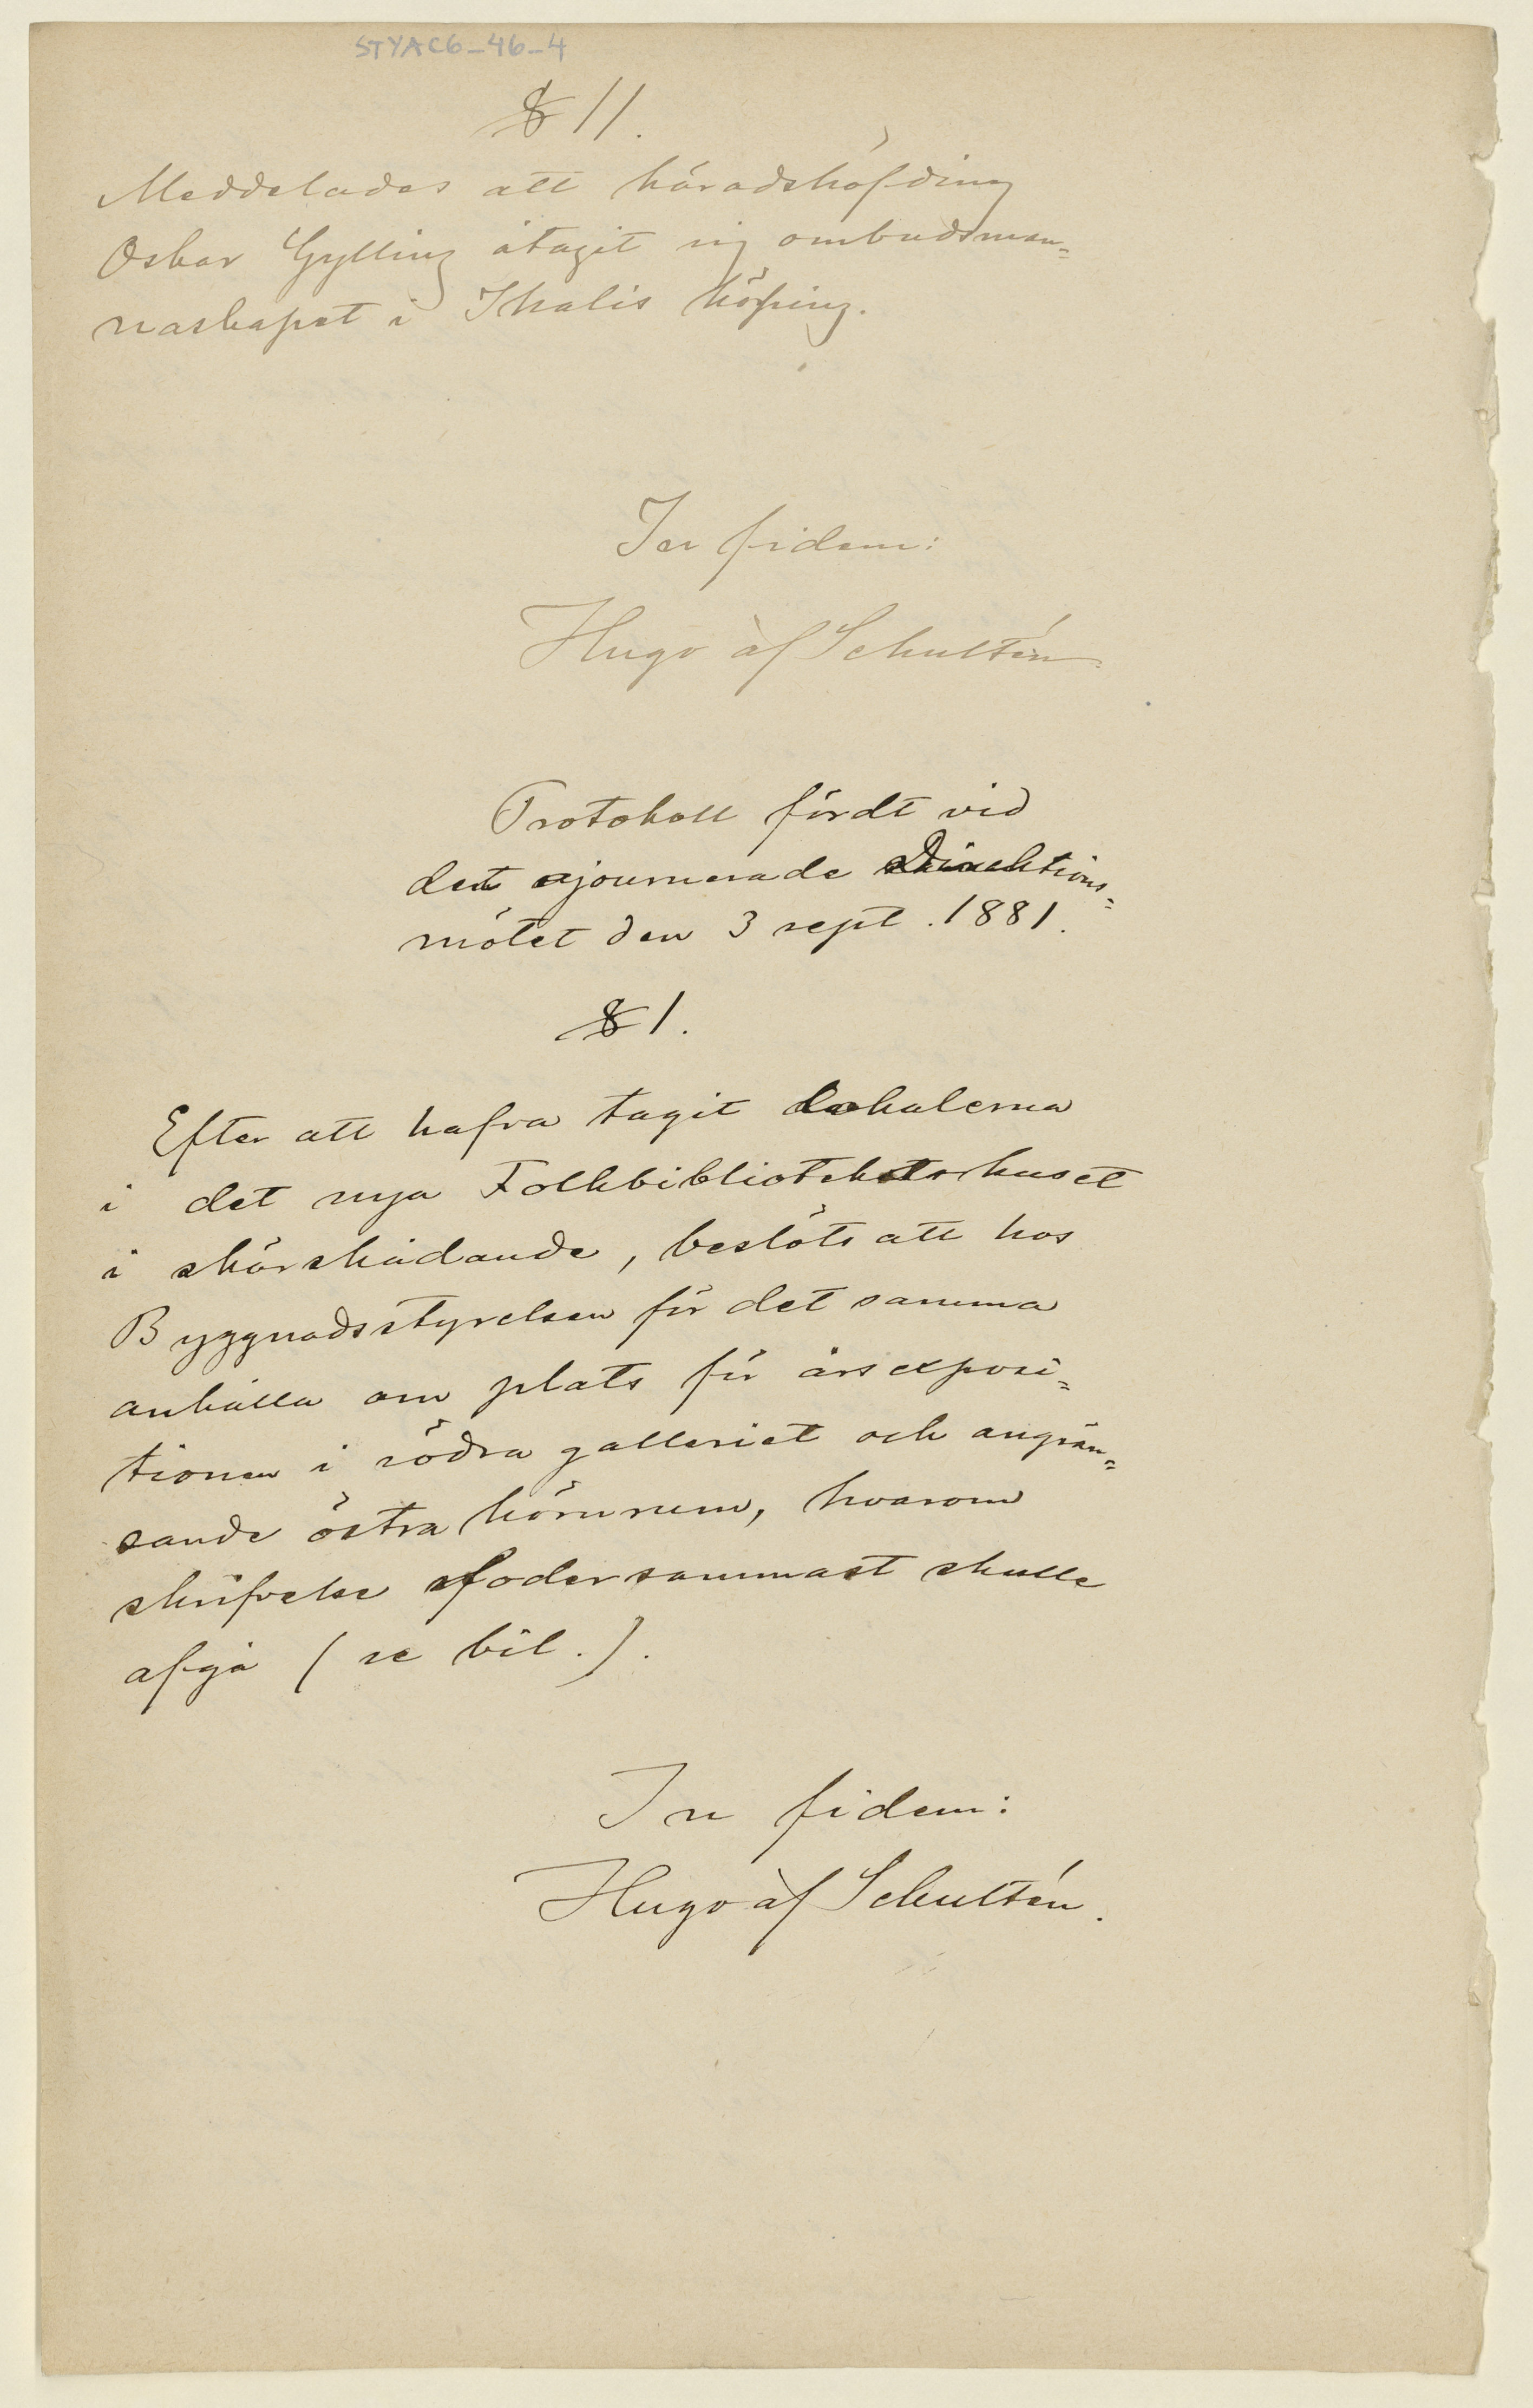 STYAC6-46-4
§ 11.
Meddelades att häradshöfding
Oskar Gylling åtagit sig ombudsman=
naskapet i Ikalis köping.
In fidem:
Hugo af Schultén.
Protokoll fördt vid
det ajournerade Direktions=
mötet den 3 sept. 1881.
§ 1.
Efter att hafva tagit lokalerna
i det nya Folkbiblioteketshuset
i skärskådande, beslöts att hos
Byggnadsstyrelsen för det samma
anhålla om plats för årsexposi=
tionen i södra galleriet och angrän=
sande östra hörnrum, hvarom
skrifvelse fodersammast skulle
afgå (se bil.).
In fidem:
Hugo af Schultén.